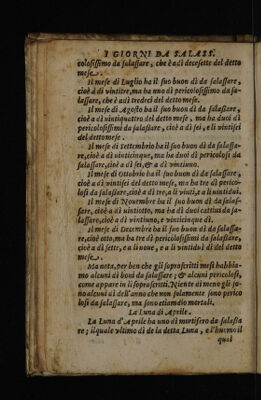 I GIORNI DA SALASS.
colosissimo da salassare, che è a dì decesette del detto
mese.
Il mese di Luglio ha il suo buon dì da salassare,
cioè à di vintitre, ma ha uno dì pericolosissimo da sa-
lassare, che è adì tredeci del detto mese.
Il mese di Agosto ha il suo buon dì da salassare,
cioè a dì vintiquattro del detto mese, ma ha duoi dì
pericolosissimi da salassare, cioè a dì sei, e li vintisei
del detto mese.
Il mese di Settembrio ha il suo buon dì da salassa-
re, cioè a dì vinticinque, ma ha duoi dì pericolosi da
salassare, cioè a dì sei, & a dì vintiuno.
Il mese di Ottobrio ha il suo buon dì da salassare,
cioè a dì vintisei del detto mese, ma ha tre dì perico-
losi da salassare, cioè a dì tre, a li vinti, e a li vintidui.
Il mese di Nouembre ha il suo buon dì da salas-
sare, cioè a dì vintiotto, ma ha dì duoi cattiui da sa-
lassare, cioè a dì vintiuno, e vinticinque dì.
Il mese di Decembre ha il suo buon dì da salassa-
re, cioè otto, ma ha tre dì pericolosissimi da salassare,
cioè a dì sette, e a li noue, e a li vintidui dì del detto
mese.
Ma nota, per ben che gli soprascritti mesi habbia-
mo alcuni dì boni da salassare; & alcuni pericolosi,
come appare in li soprascritti. Niente di meno gli so-
no alcuni dì dell'anno che non solamente sono perico
losi da salassare, ma sono etiamdio mortali.
La Luna di Aprile.
La Luna d'Aprile ha uno dì mortifero da salassa
re; il quale vltimo dì de la detta Luna, e l'huomo il
qual